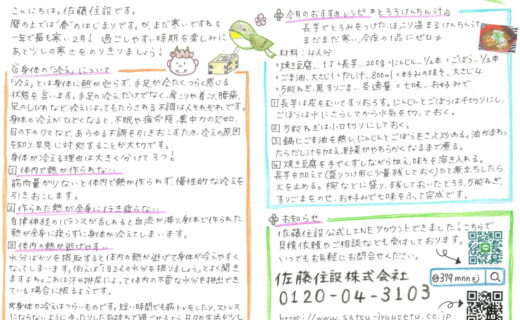 こんにちは。佐藤住設です。
暦の上では"春"のはじまりですが、まだ寒いですね。
一年で最も寒い2月！過ごしやすい時期を楽しみに
あと少しの寒さをのりきりましょう！
身体の「冷え」について
「冷え」とは身体に熱が足らず、手足が冷たくつらく感じる
状態を言います。手足の冷えだけでなく、肩こりや首コリ、腰痛、
足のしびれなど、冷えによってもたらされる不調は人それぞれです。
身体の冷えがひどくなると、不眠や疲労感、集中力の欠如、
目の下のクマなど、あらゆる不調を引きおこすため、冷えの原因
を知り早急に対処することが大切です。
身体が冷える理由は大きく分けて3つ！
1 体内で熱が作られない
筋肉量が少ないと体内で熱が作られず、慢性的な冷えを
引きおこします。
2 作られた熱が全身に行き渡らない
自律神経のバランスが乱れると血流が滞り身体で作られた
熱が全身に渡らずに身体が冷えてしまいます。
3 体内の熱が逃げ出す
水分ばかりを摂取すると体内の熱が逃げて身体が冷えやすく
なってしまいます。
今月のおすすめレシピ とろろけんちん汁
長芋でとろみをつけた、ほっこり温まるけんちん汁
まだまだ寒い今夜の1品にぜひ
材料：4人分
・焼豆腐…1/2
・長芋…200g
・にんじん…1/2本
・ごぼう…1/2本
・ごま油…大さじ1
・だし汁…800ml
・お好みのみそ…大さじ4
・万能ねぎ、黒すりごま…各適量
・七味…お好みで
1 長芋は皮をむいてすりおろす。にんじんとごぼうは千切りにし、
ごぼうは水にさらしてから水気を切っておく。
2 万能ねぎは小口切りにしておく。
3 鍋にごま油を熱しにんじんとごぼうをさっと炒める。油がまわっ
たらだし汁を加え、野菜がやわらかくなるまで煮る。
4 焼豆腐を手でくずしながら加え、味そを溶き入れる。
長芋を加えて(盛りつけ用に少量残しておく)ひと煮立ちしたら
火を止める。椀などに盛り、残しておいたとろろ、万能ねぎ、
すりごまをのせ、お好みで七味をふって完成です。
お知らせ
佐藤住設公式LINEアカウントできました！こちらで
見積依頼やご相談なども受けております。
いつでもお気軽にお問合せください。
佐藤住設株式会社
@379mnnxj
0120-04-3103
https://www.satou-jyusetu.co.jp